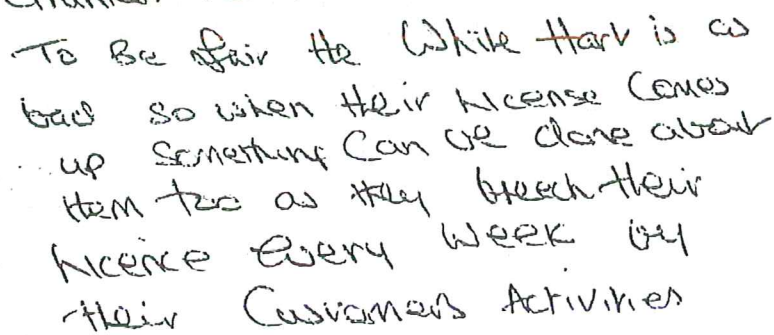 To Be fair the White Hart is as
bad so when their license comes
up something can be done about
them too as they breech their
licence every week by
their Customers Activities